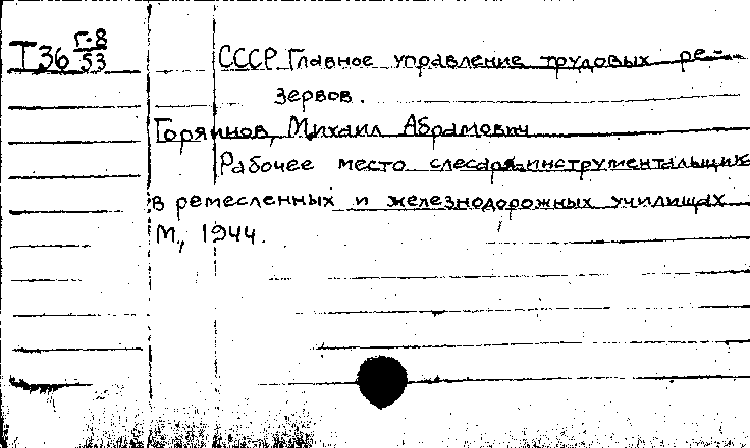 Т36 Г-8/53 СССР Главное управление трудовых ре-
зервов.
Горяинов, Михаил Абрамович
Рабочее место слесаря-инструментальщик
в ремесленных и железнодорожных училищах
М., 1944.